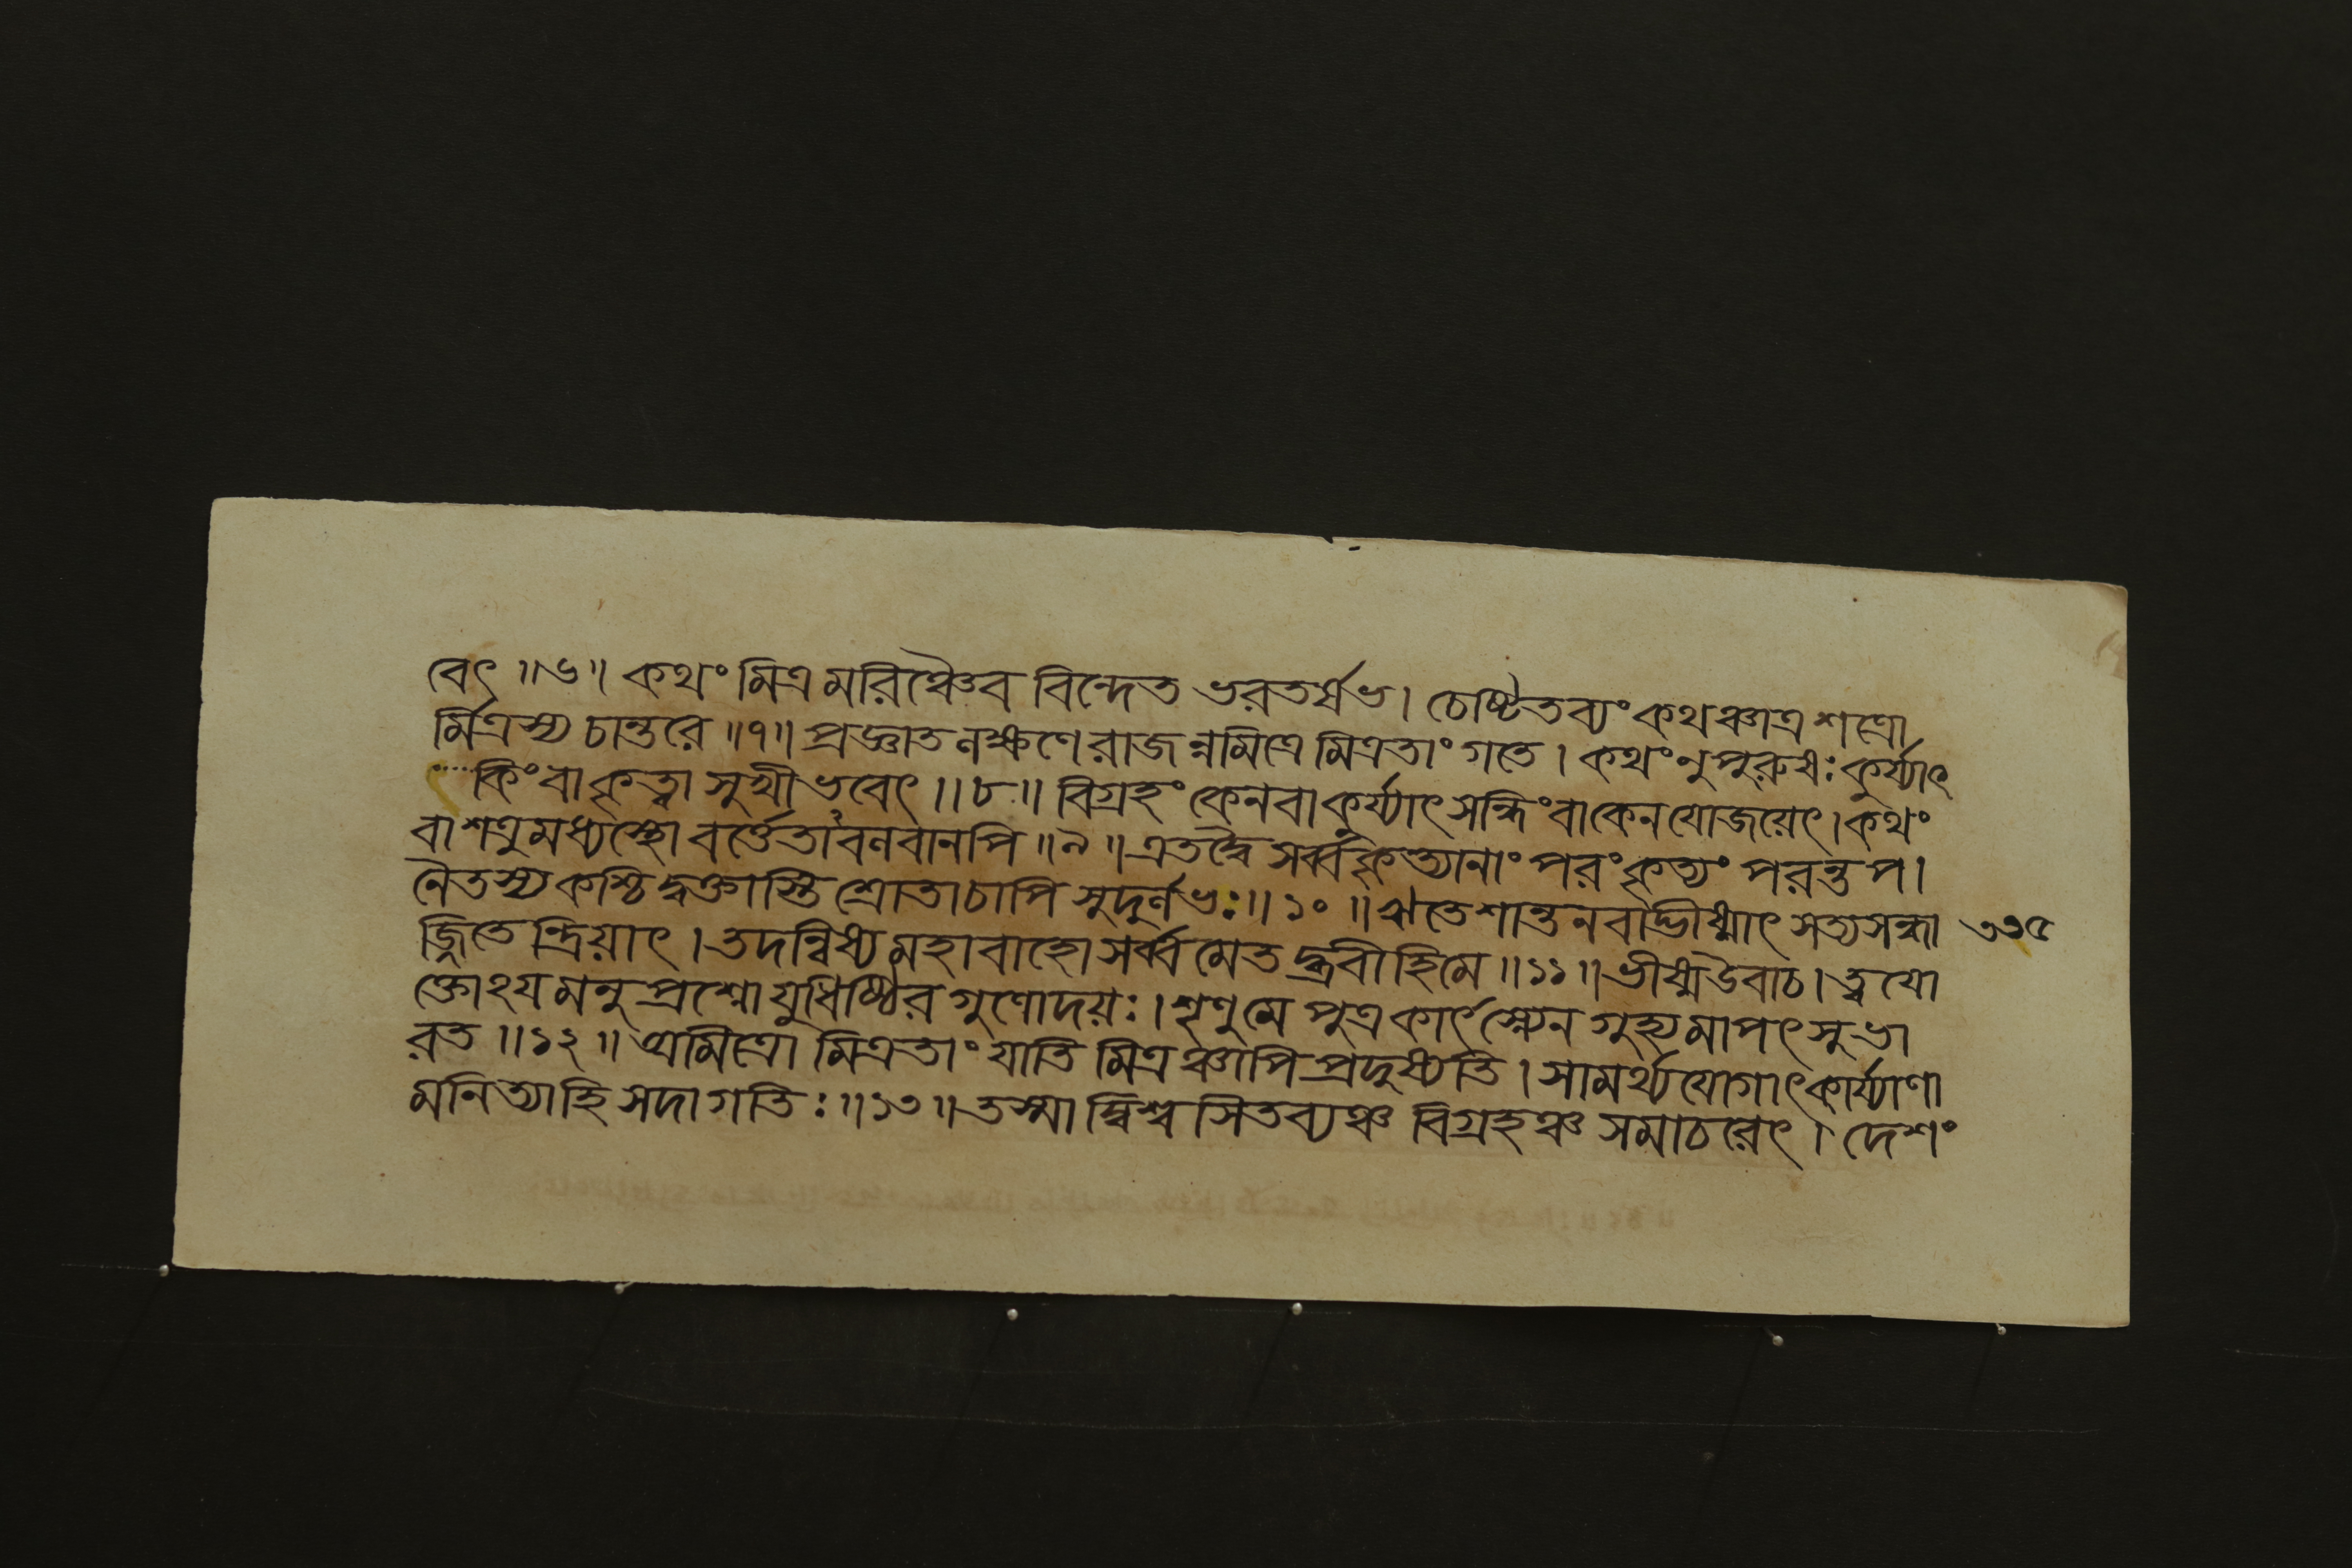 বেৎ ॥৬॥ কথং মিত্রমরিঞ্চৈব বিন্দেত ভরতর্ষভ। চেষ্টিতব্যং কথঞ্চাত্র শত্রো
র্মিত্রস্য চান্তরে ॥৭॥ প্রজ্ঞাতলক্ষণে রাজন্নমিত্রে মিত্রতাং গতে। কথং নু পুরুষঃ কুর্য্যাৎ
কিং বা কৃত্বা সুখী ভবেৎ ॥৮॥ বিগ্রহং কেন বা কুর্য্যাৎ সন্ধিং বা কেন যোজয়েৎ। কথং
বা শত্রুমধ্যস্থো বর্ত্তেতাবলবানপি ॥৯॥ এতদ্বৈ সর্ব্বকৃত্যানাং পরং কৃত্যং পরন্তপ।
নৈতস্য কশ্চিদ্বক্তাস্তি শ্রোতা চাপি সুদুর্লভঃ ॥১০॥ ঋতে শান্তনবাদ্ভীষ্মাৎ সত্যসন্ধা ৩১৫
জ্জিতেন্দ্রিয়াৎ। তদন্বিষ্য মহাবাহো সর্ব্বমেতদ্ব্রবীহি মে ॥১১॥ ভীষ্ম উবাচ। ত্বযো
ক্তোঽয়মনুপ্রশ্নো যুধিষ্ঠির গুণোদয়ঃ। শৃণু মে পুত্র কার্ৎস্ন্যেন গুহ্যমাপৎসু ভা
রত ॥১২॥ অমিত্রো মিত্রতাং যাতি মিত্রঞ্চাপি প্রদুষ্যতি। সামর্থ্যযোগাৎ কার্য্যাণা
মনিত্যা হি সদা গতিঃ ॥১৩॥ তস্মাদ্বিশ্বসিতব্যঞ্চ বিগ্রহঞ্চ সমাচরেৎ। দেশং